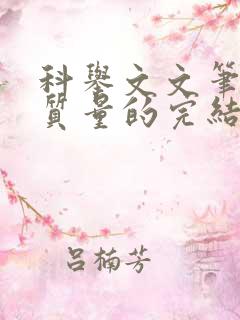 科舉文文筆
質量的完結
呂楠芳